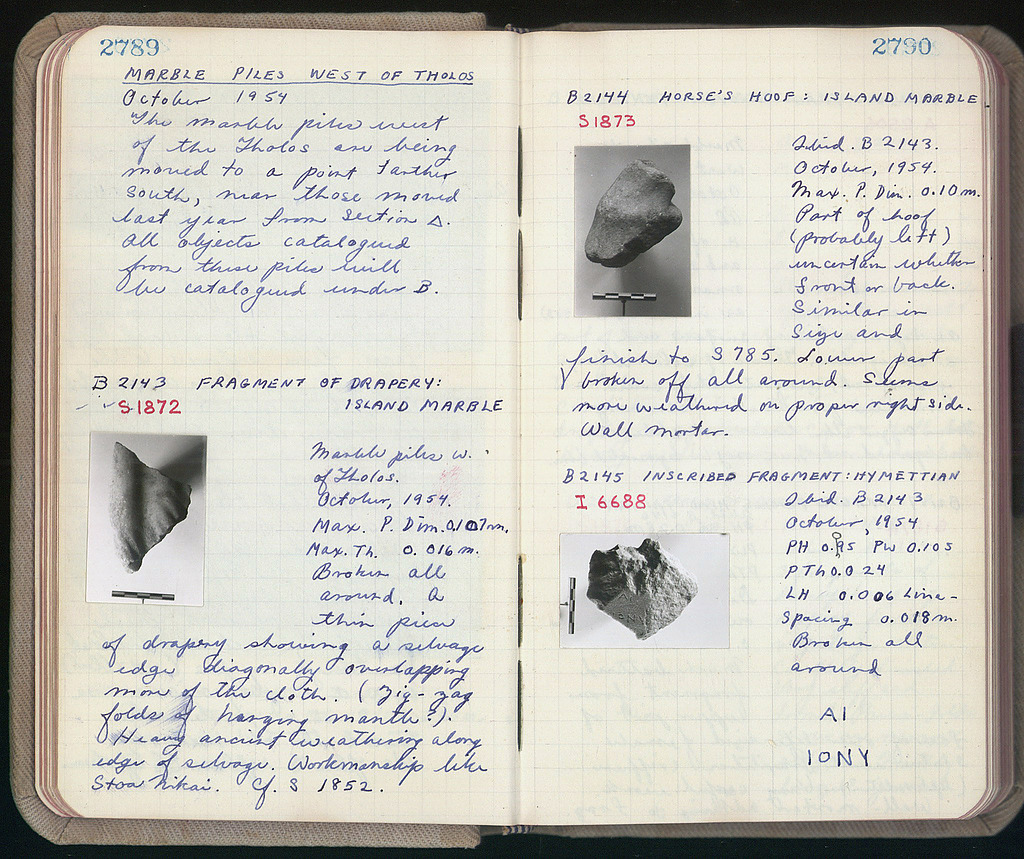 2789
MARBLE PILES WEST OF THOLOS
October 1954
The marble piles west
of the Tholos are being
moved to a point farther
South, near those moved
last year from Section Δ.
All objects catalogued
from these piles will
be catalogued under B.
B 2143 FRAGMENT OF DRAPERY:
S 1872 ISLAND MARBLE
Marble piles W.
of Tholos.
October, 1954.
Max. P. Dim. 0.107m.
Max. Th. 0.016m.
Broken all
around. A
thin piece
of drapery showing a selvage
edge diagonally overlapping
more of the cloth. (Zig-zag
folds of hanging mantle?).
Heavy ancient weathering along
edge of selvage. Workmanship like
Stoa Nikai. Cf. S 1852.
2790
B2144 HORSE'S HOOF: ISLAND MARBLE
S1873
Ibid. B 2143.
October, 1954.
Max. P. Dim. 0.10m.
Part of hoof
(probably left)
uncertain whether
front or back.
Similar in
Size and
finish to S 785. Lower part
broken off all around. Seems
more weathered on proper right side.
Wall mortar.
B2145 INSCRIBED FRAGMENT: HYMETTIAN
I 6688
Ibid. B 2143
October, 1954
PH PW 0.105
PTh 0.024
LH 0.006 Line-
Spacing 0.018m.
Broken all
around
AI
IONY